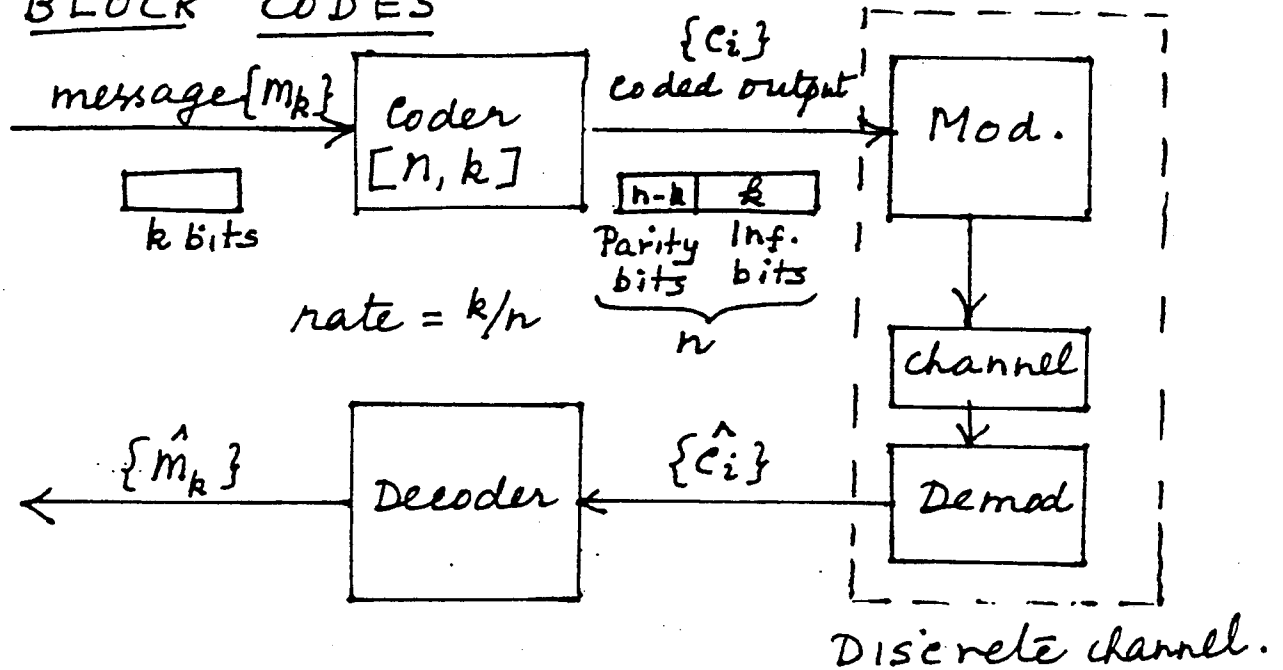 BLOCK CODES
message {m_k}
k bits
Coder
[n, k]
{c_i}
coded output
n-k k
Parity Inf.
bits bits
n
rate = k/n
Mod.
channel
Demod
{ĉ_i}
Decoder
{m̂_k}
Discrete channel.